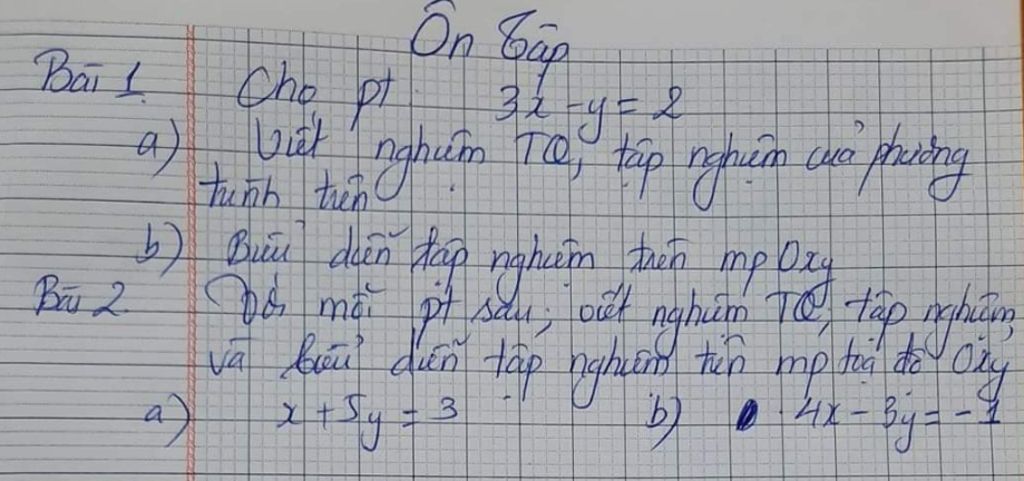 Ôn tập
Bài 1. Cho pt 3x - y = 2
a) Viết nghiệm TQ, tập nghiệm của phương
trình trên
b) Biểu diễn tập nghiệm trên mp Oxy
Bài 2. Với mỗi pt sau, viết nghiệm TQ, tập nghiệm
và biểu diễn tập nghiệm trên mp toạ độ Oxy
a) x + 5y = 3 b) 4x - 3y = -1